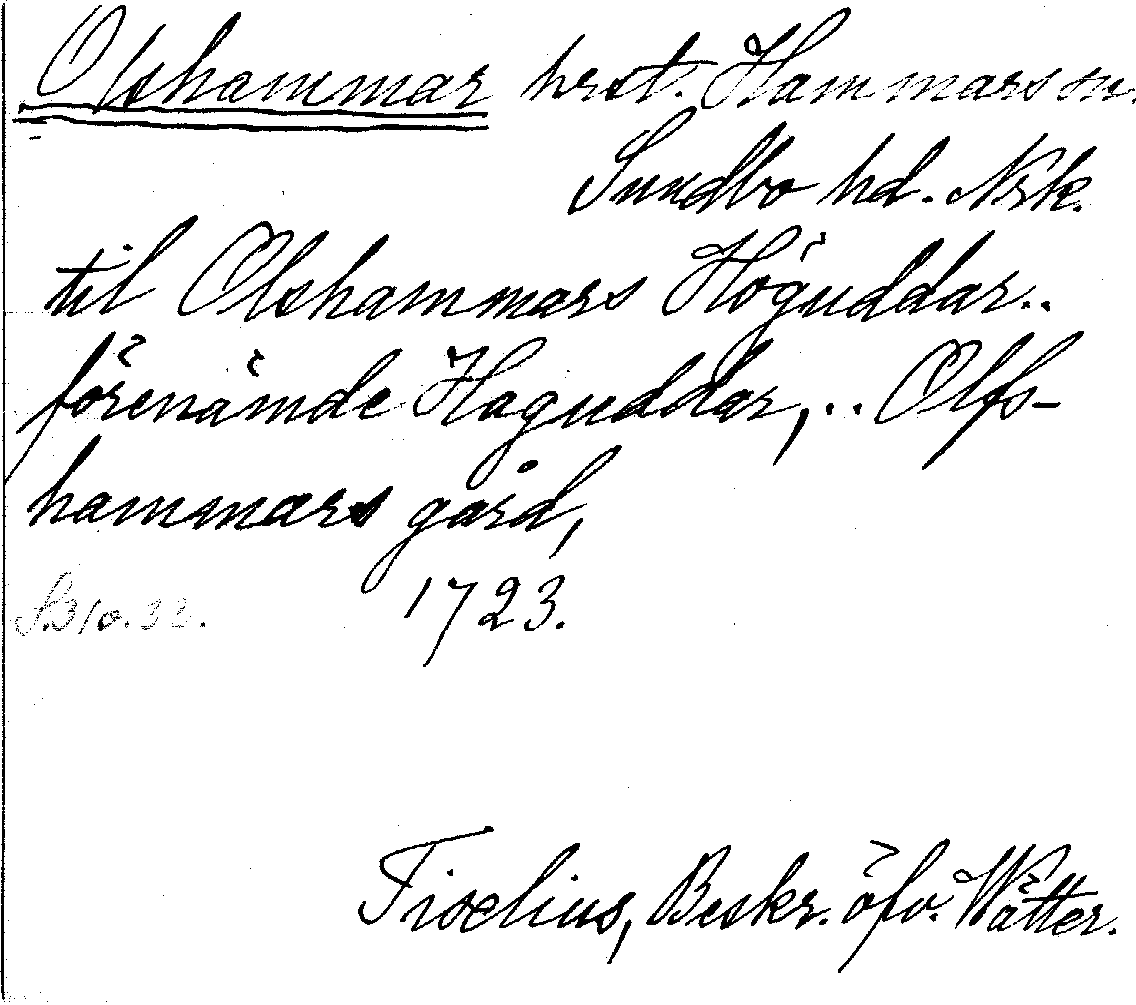 Olshammar hrst. Hammars sn.
Sundbo hd. Nrk.
til Olshammars Höguddar..
förenämde Haguddar, .. Olfs-
hammars gård,
1723.
S. 31/0. 32.
Tiselius, Beskr. öfv. Wätter.